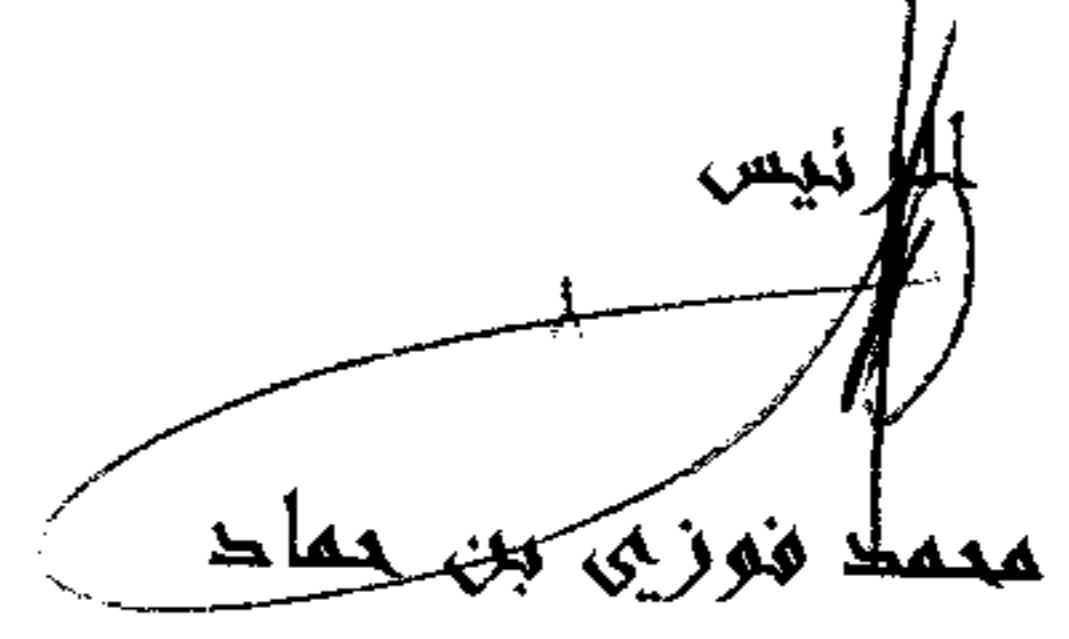 الرئيس
محمد فوزي بن حماد